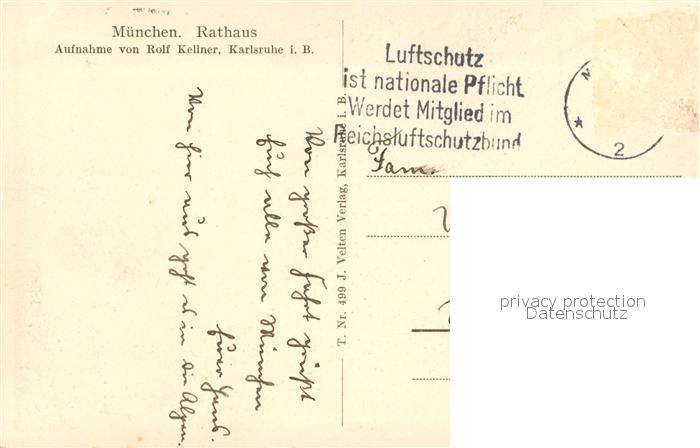 München. Rathaus
Aufnahme von Rolf Kellner, Karlsruhe i. B.
Luftschutz
ist nationale Pflicht
Werdet Mitglied im
Reichsluftschutzbund
2
T. Nr. 499 J. Velten Verlag, Karlsruhe i. B.
Fam
Von großer Fahrt grüßt
Euch alle von München
Euer Hans.
Von hier aus geht es in die Alpen.
privacy protection
Datenschutz